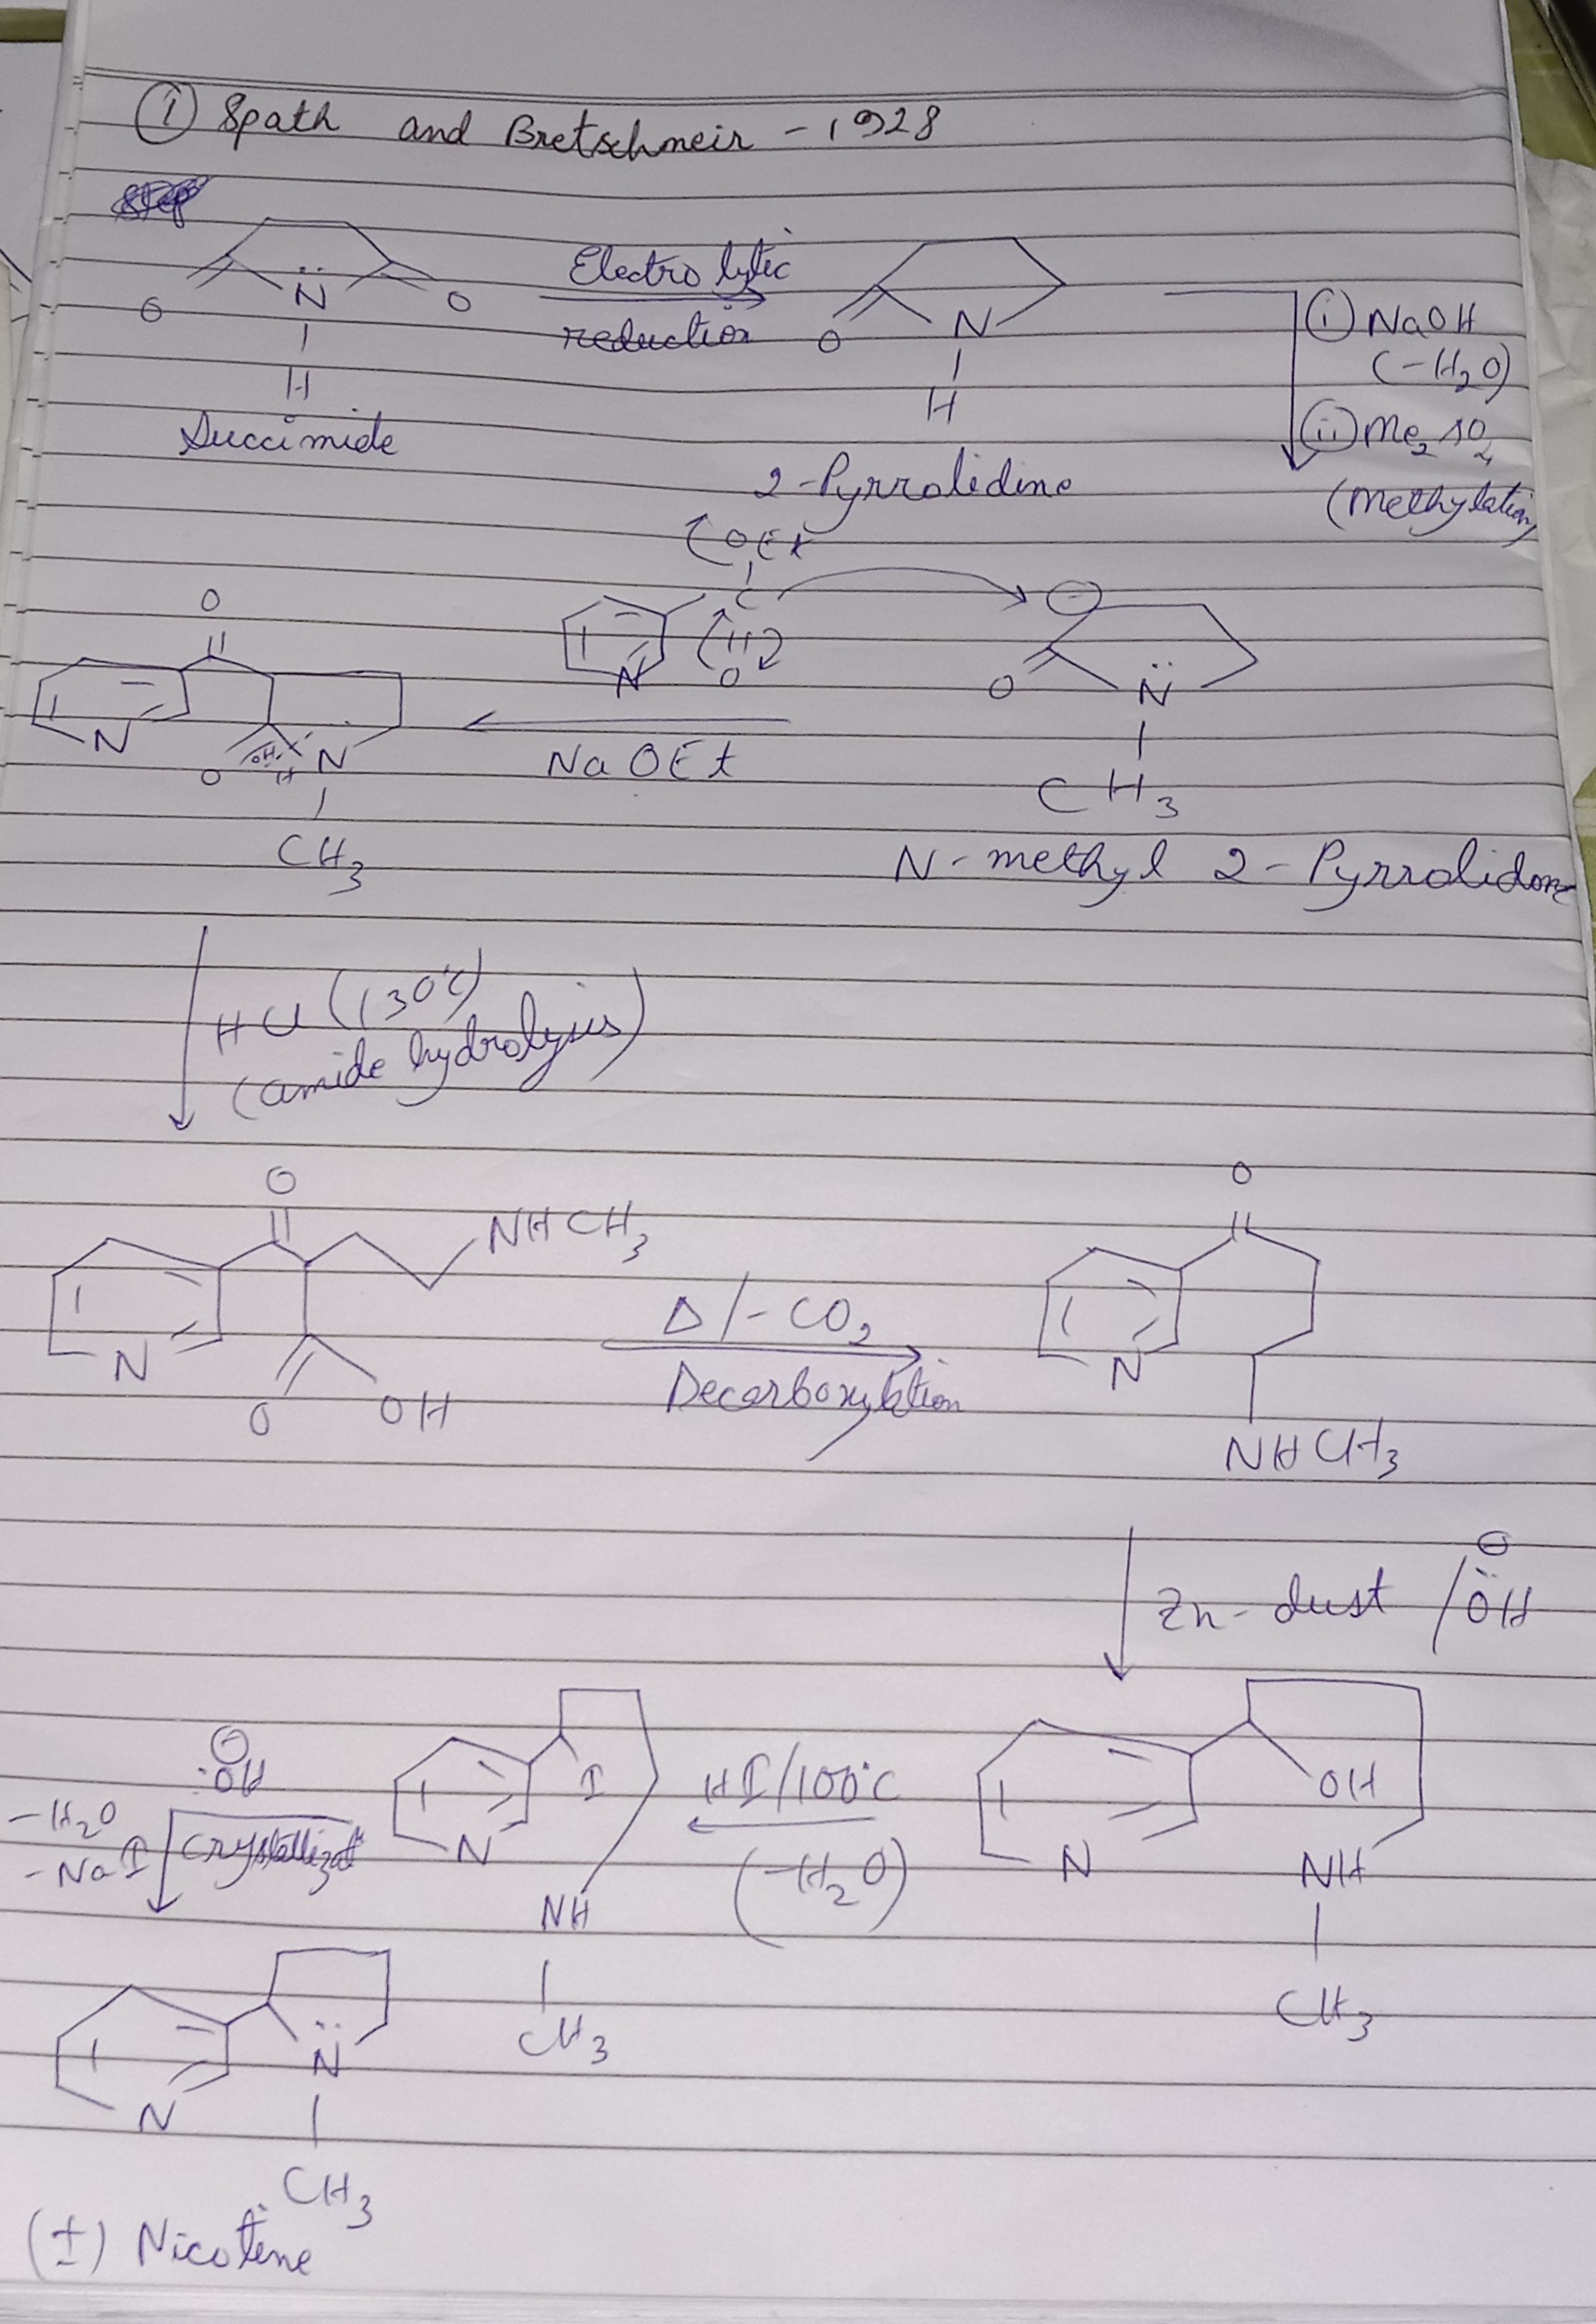 ① Spath and Bretschmeir - 1928
O N O
H
Succimide
Electrolytic
reduction
O N
H
2-Pyrrolidine
(i) NaOH
(-H2O)
(ii) Me2SO4
(Methylation)
O
N
O N
CH3
OEt
C
O
N
NaOEt
⊖
O N
CH3
N-methyl 2-Pyrrolidone
HCl (130°C)
(amide hydrolysis)
O
NHCH3
N
O OH
Δ/-CO2
Decarboxylation
O
N
NHCH3
Zn-dust /ÖH⊖
OH
N NH
CH3
HI/100°C
(-H2O)
I
N
NH
CH3
⊖
:ÖH
-H2O
-NaI
Crystallizat
N
N
CH3
(±) Nicotine